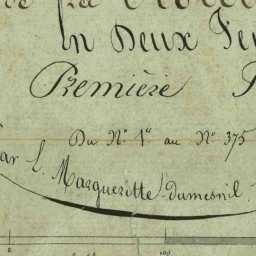 In Deux Feu
Première P
Du N° 1er au N° 375
Par L. Margueritte-Dumesnil.